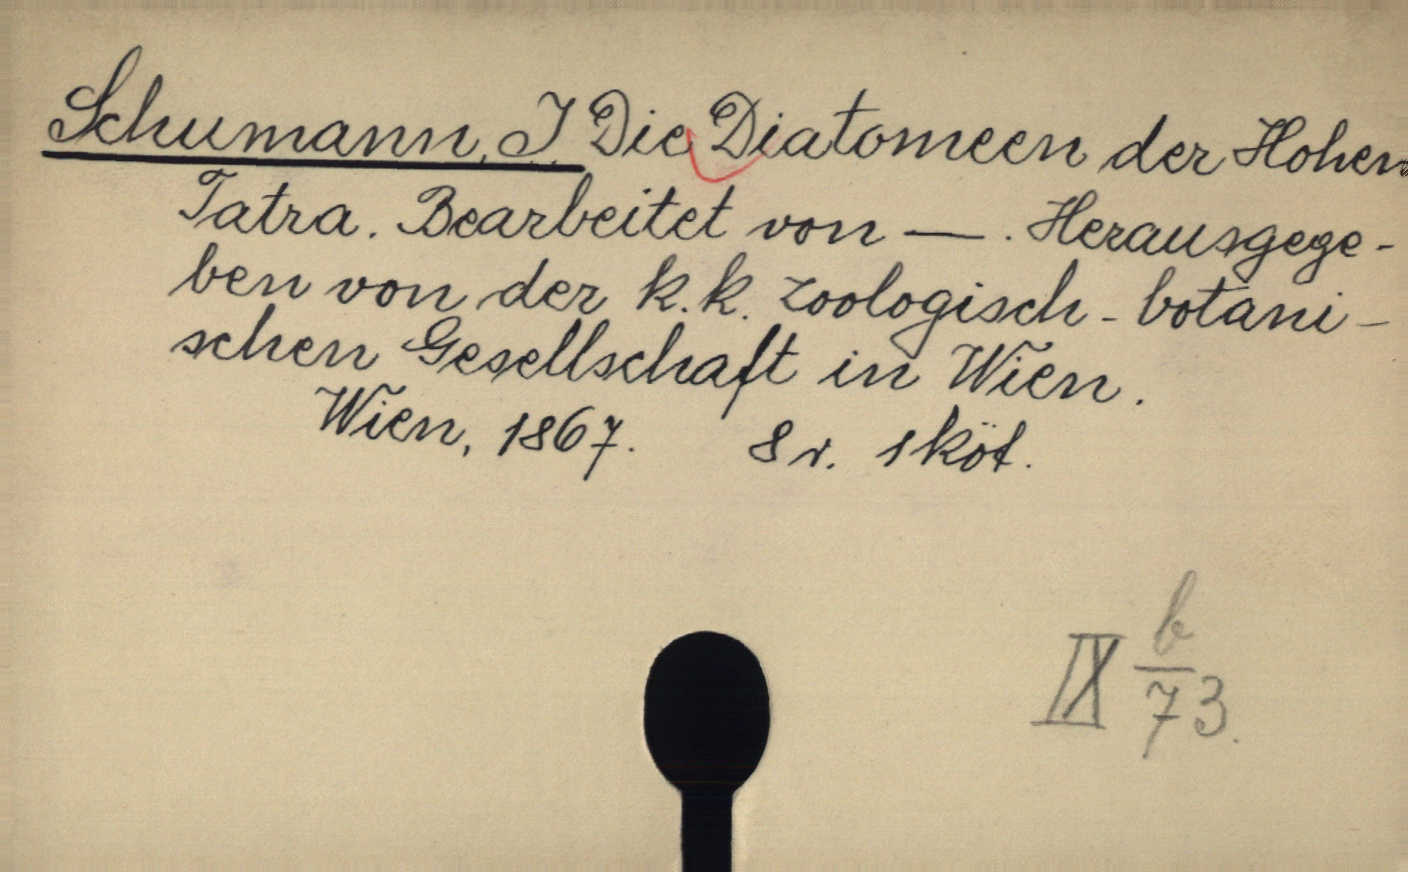 Schumann, J. Die Diatomeen der Hohen
Tatra. Bearbeitet von —. Herausgege-
ben von der k.k. zoologisch-botani-
schen Gesellschaft in Wien.
Wien, 1867. 8r. 1 köt.
IX b/73.